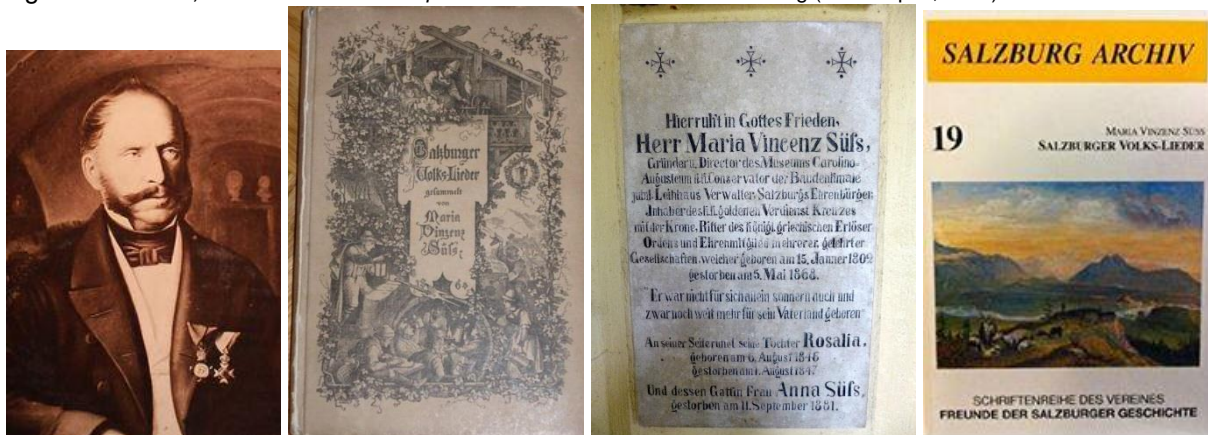 Salzburger
Volks-Lieder
gesammelt
von
Maria
Vinzenz
Süß
Hier ruh't in Gottes Frieden,
Herr Maria Vincenz Süſs,
Gründer u. Director des Museums Carolino-
Augusteum k.k. Conservator der Baudenkmale
jubil. Leihhaus Verwalter, Salzburgs Ehrenbürger
Inhaber des k.k. goldenen Verdienst Kreuzes
mit der Krone, Ritter des königl. griechischen Erlöser
Ordens und Ehrenmitglied mehrerer gelehrter
Gesellschaften, welcher geboren am 15. Jänner 1802
gestorben am 5. Mai 1868.
Er war nicht für sich allein sondern auch und
zwar noch weit mehr für sein Vaterland geboren
An seiner Seite ruhet seine Tochter Rosalia,
geboren am 6. August 1846
gestorben am 1. August 1847
Und dessen Gattin Frau Anna Süſs,
gestorben am 11. September 1881.
SALZBURG ARCHIV
19
MARIA VINZENZ SÜSS
SALZBURGER VOLKS-LIEDER
SCHRIFTENREIHE DES VEREINES
FREUNDE DER SALZBURGER GESCHICHTE